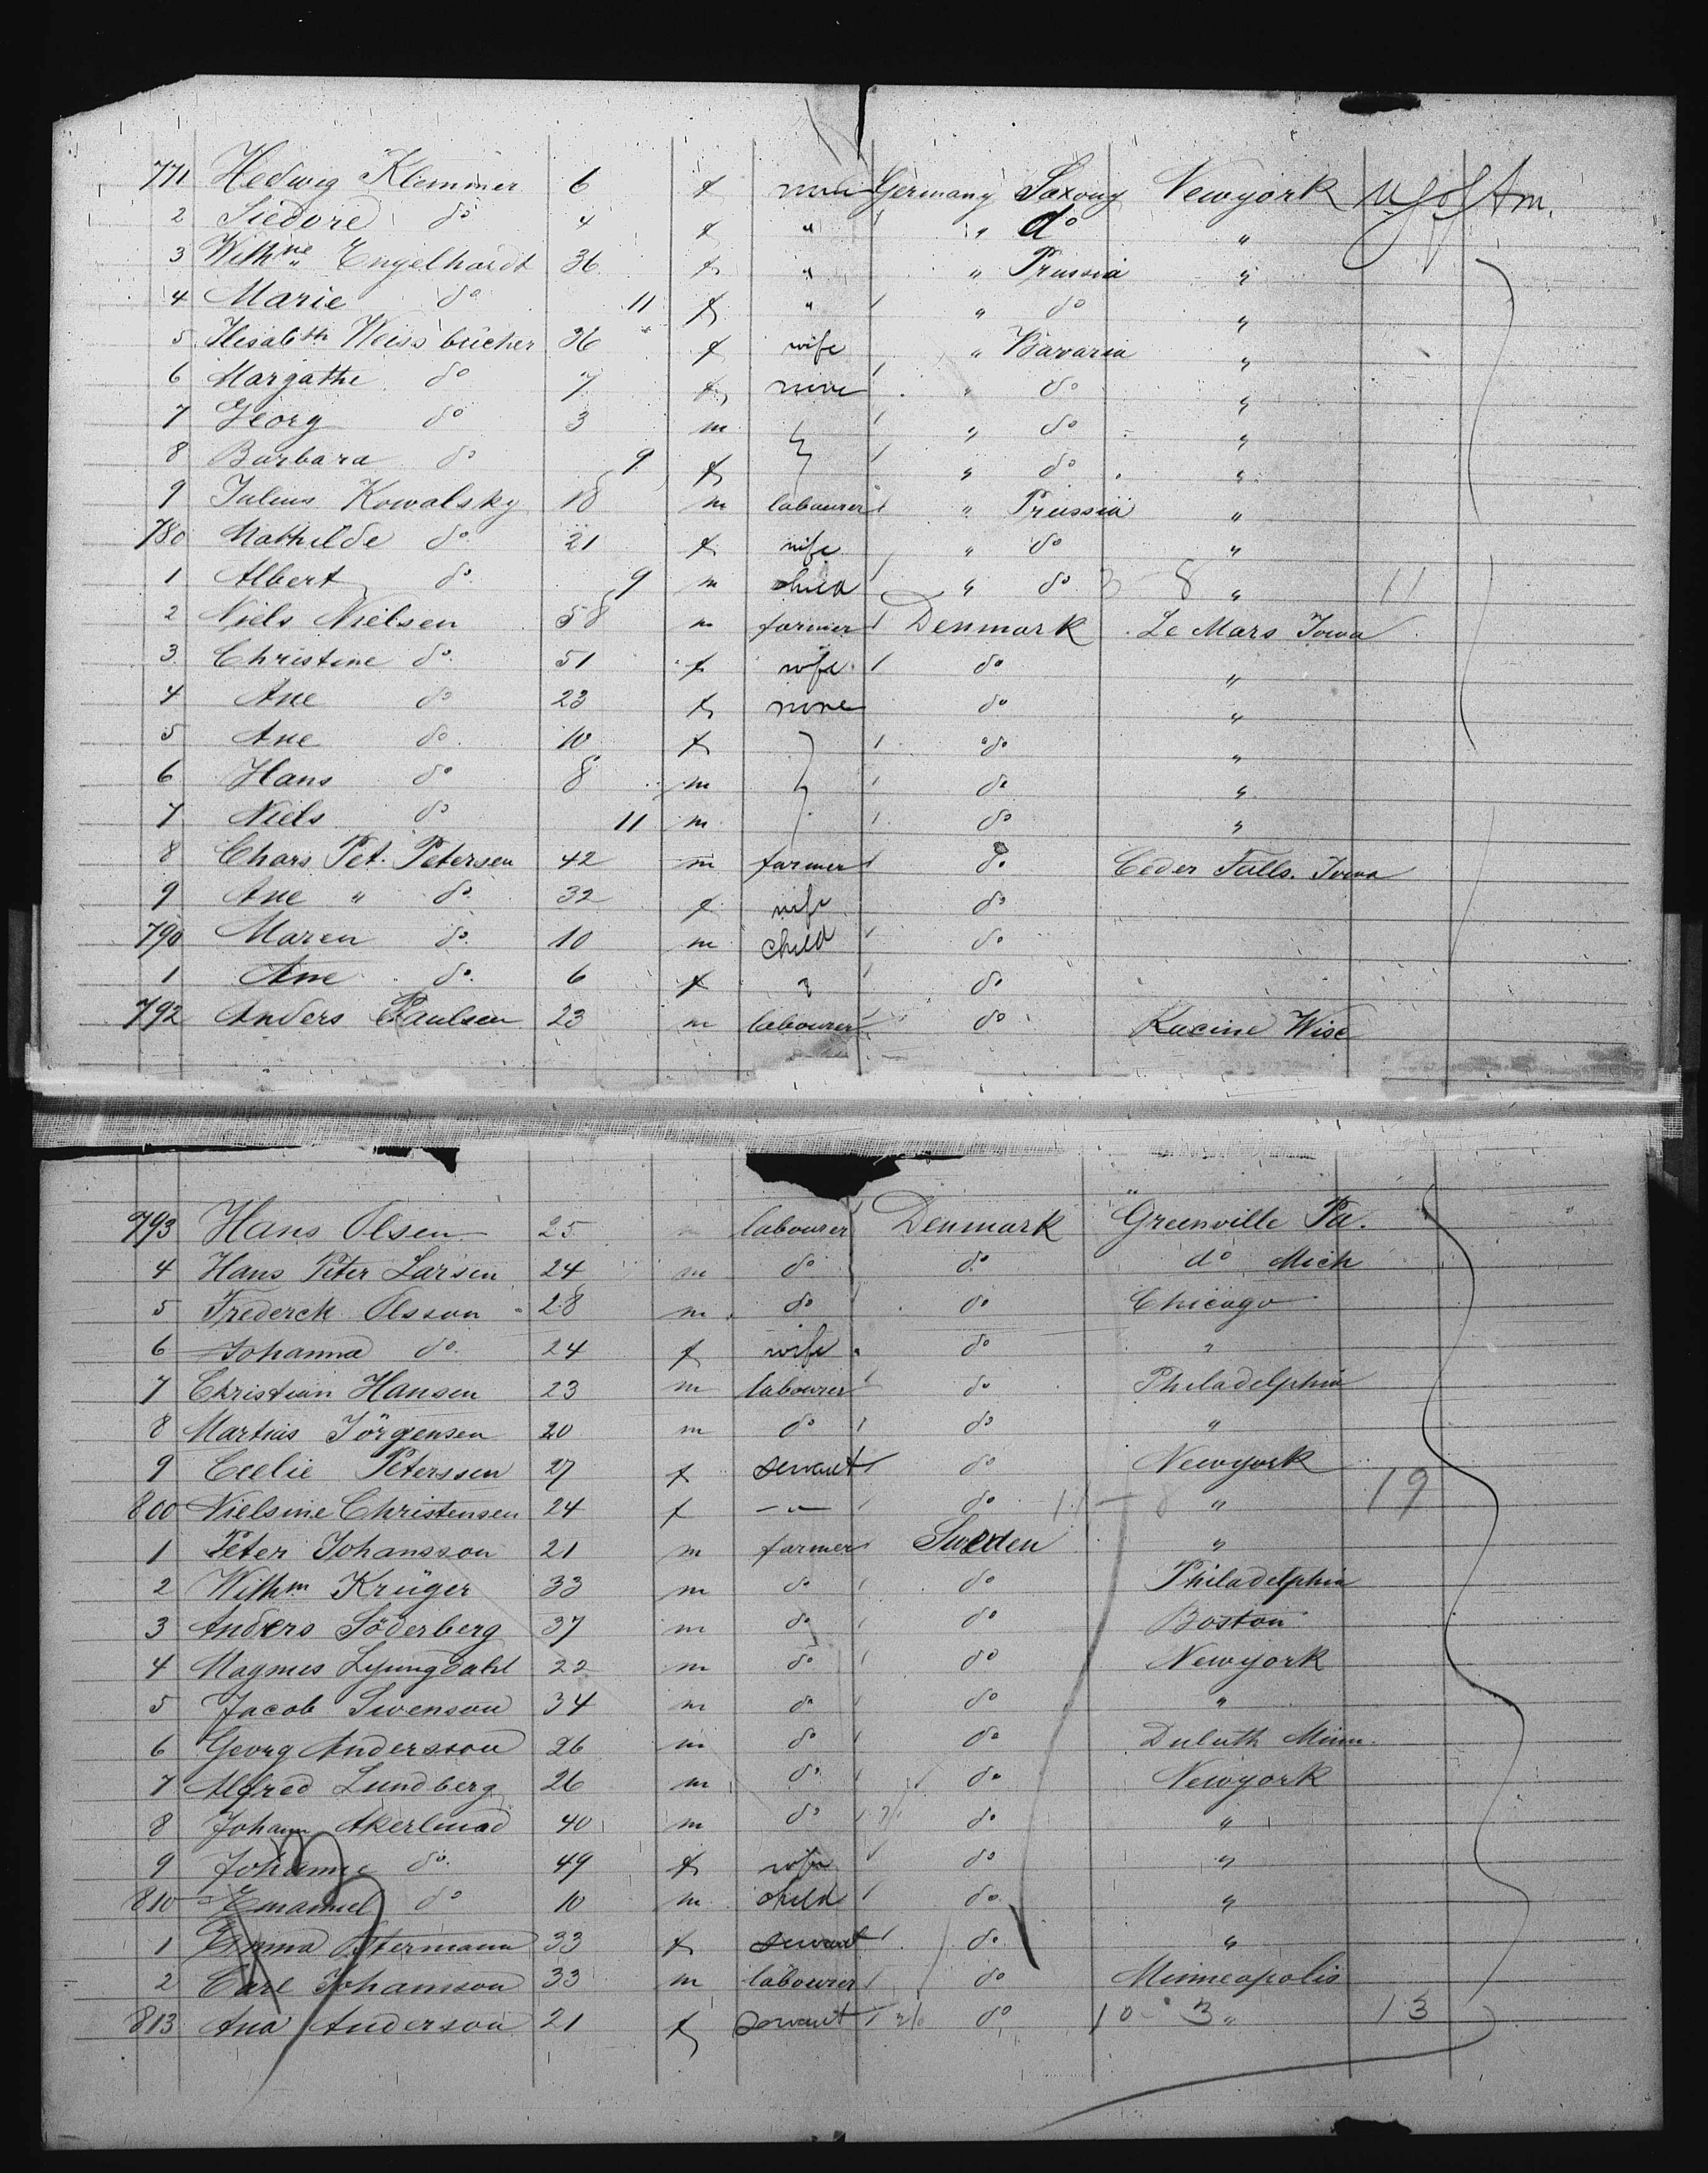 771 Hedwig Klemmer 6 f none Germany Saxony Newyork U S of Am.
2 Isedore do 4 f " " do "
3 Wilhne Engelhardt 36 f " " Prussia "
4 Marie do 11 f " " do "
5 Elisabth Weissbücher 36 f wife " Bavaria "
6 Margathe do 7 f none " do "
7 Georg do 3 m " do "
8 Barbara do 9 f " do "
9 Julius Kowalsky 18 m labourer " Prussia "
780 Mathilde do 21 f wife " do "
1 Albert do 9 m child " do 3 8 " 11
2 Niels Nielsen 58 m farmer Denmark Le Mars Iowa
3 Christine do 51 f wife do "
4 Ane do 23 f none do "
5 Ane do 10 f do "
6 Hans do 8 m do "
7 Niels do 11 m do "
8 Chars Pet. Petersen 42 m farmer do Ceder Falls. Iowa
9 Ane " do 32 f wife do
790 Maren do 10 m child do
1 Ane do 6 f do
792 Anders Paulsen 23 m labourer do Racine Wisc
793 Hans Olsen 25 m labourer Denmark Greenville Pa.
4 Hans Peter Larsen 24 m do do do Mich
5 Frederck Olsson 28 m do do Chicago
6 Johanna do 24 f wife do "
7 Christian Hansen 23 m labourer do Philadelphia
8 Martias Jörgensen 20 m do do "
9 Ceelie Peterssen 27 f servant do Newyork
800 Nielsine Christensen 24 f — " — do 11 - 8 " 19
1 Peter Johansson 21 m farmer Sweden "
2 Wilhm Krüger 33 m do do Philadelphia
3 Anders Söderberg 37 m do do Boston
4 Magnus Lyungdahl 22 m do do Newyork
5 Jacob Swenson 34 m do do "
6 Georg Andersson 26 m do do Duluth Minn.
7 Alfred Lundberg 26 m do do Newyork
8 Johann Akerlund 40 m do do "
9 Johanne do 49 f wife do "
810 Emanuel do 10 m child do "
1 Emma Ostermann 33 f servant do "
2 Carl Johansson 33 m labourer do Minneapolis
813 Ana Anderson 21 f servant do 10 - 3 " 13